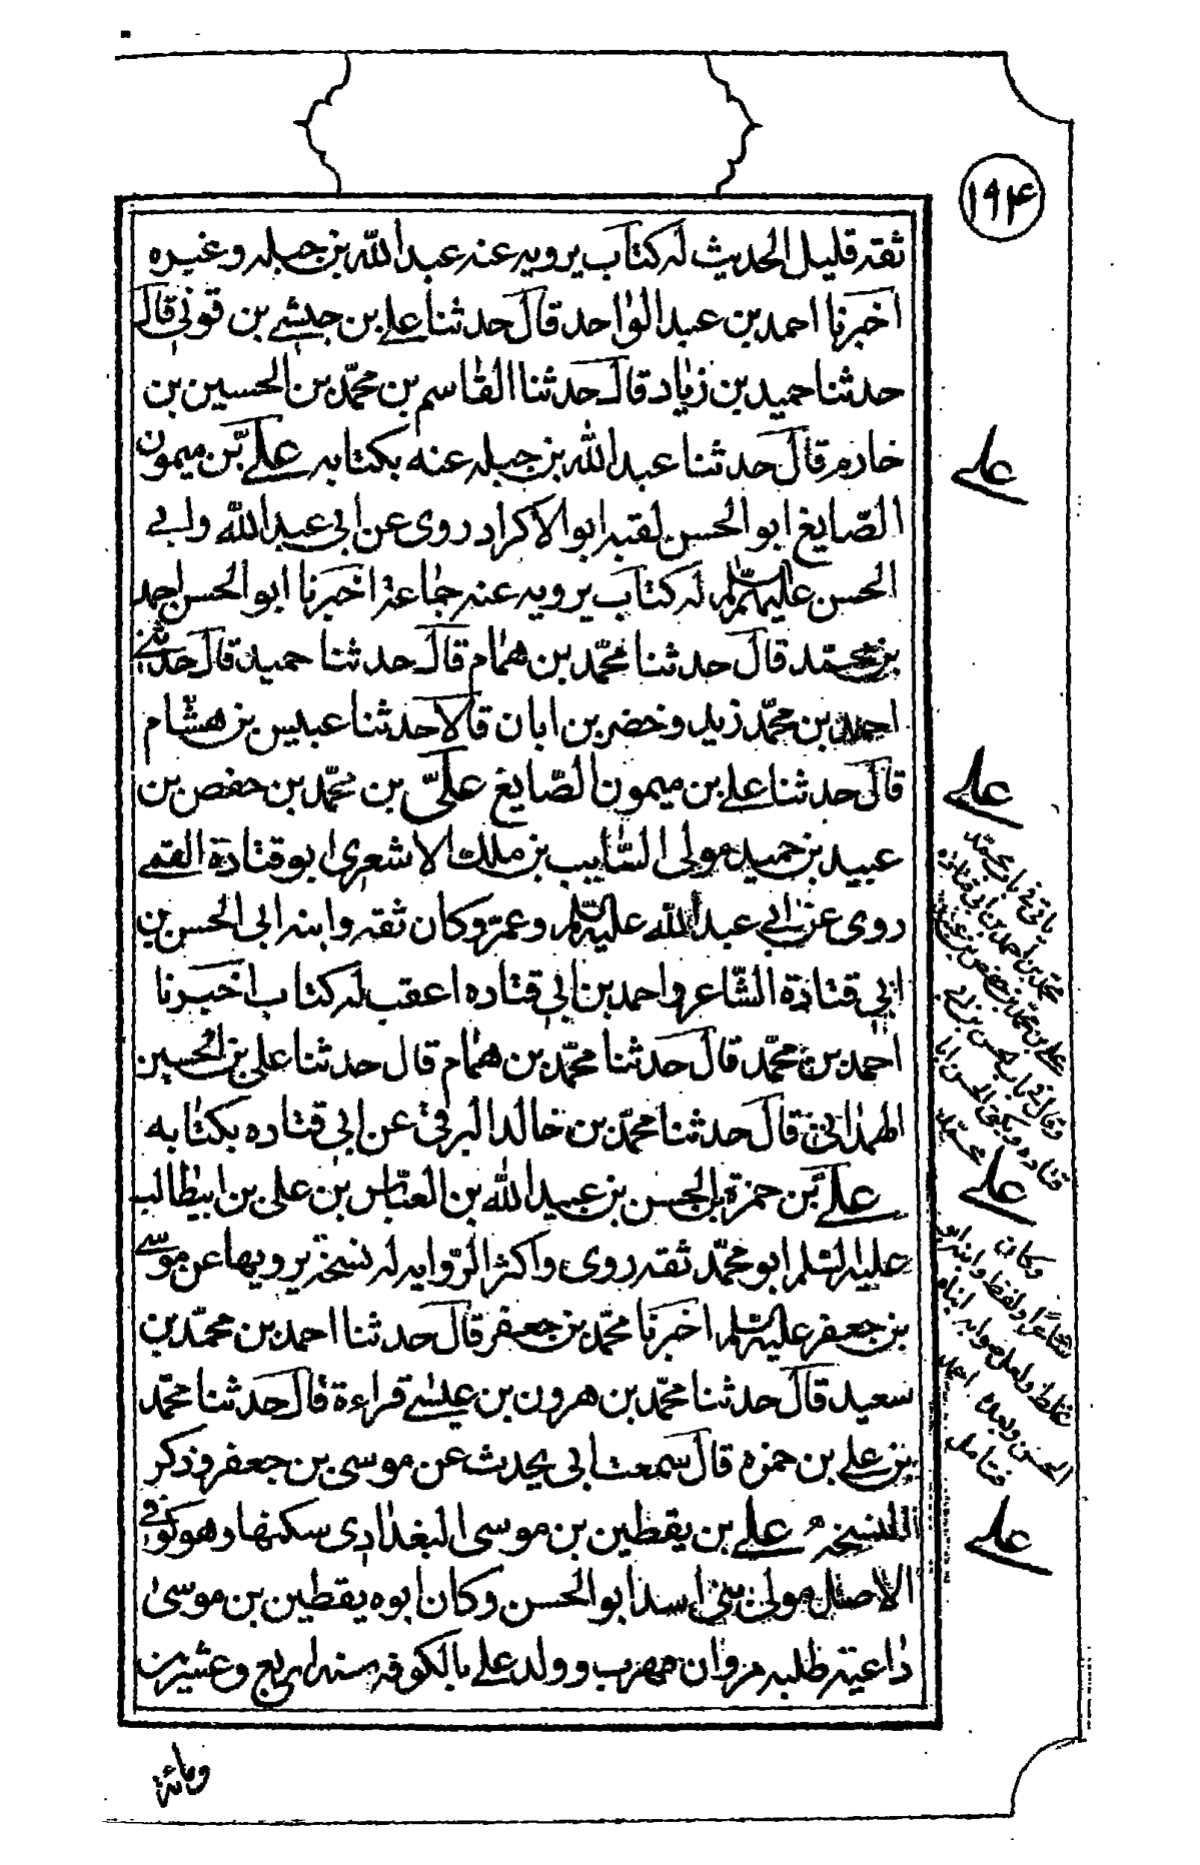 ۱۹۴
ثقه قليل الحديث له كتاب يرويه عنه عبد الله بن جبله وغيره
اخبرنا احمد بن عبد الواحد قال حدثنا علي بن حبشي بن قوني قال
حدثنا حميد بن زياد قال حدثنا القاسم بن محمّد بن الحسين بن
خازم قال حدثنا عبد الله بن جبله عنه بكتابه علي بن ميمون
الصّايغ ابو الحسن لقبه ابو الاكراد روى عن ابي عبد الله وابي
الحسن عليهما السلم له كتاب يرويه عنه جماعة اخبرنا ابو الحسن احمد
بن محمّد قال حدثنا محمّد بن همام قال حدثنا حميد قال حدثني
احمد بن محمّد زيد وخضر بن ابان قالا حدثنا عبيس بن هشام
قال حدثنا علي بن ميمون الصّايغ عليّ بن محمّد بن حفص بن
عبيد بن حميد مولى السّايب بن ملك الاشعرى ابو قتادة القمي
روى عن ابي عبد الله عليه السلم وعمّر وكان ثقه وابنه ابى الحسن بن
ابي قتادة الشّاعر واحمد بن ابي قتاده اعقب له كتاب اخبرنا
احمد بن محمّد قال حدثنا محمّد بن همام قال حدثنا على بن الحسين
الهمدانى قال حدثنا محمّد بن خالد البرقي عن ابى قتاده بكتابه
علىّ بن حمزة بن الحسن بن عبيد الله بن العبّاس بن على بن ابيطالب
عليه السلم ابو محمّد ثقه روى واكثر الرّوايه له نسخة يرويها عن موسى
بن جعفر عليه السلم اخبرنا محمّد بن جعفر قال حدثنا احمد بن محمّد بن
سعيد قال حدثنا محمّد بن هرون بن عيسى قراءة قال حدثنا محمّد
بن علي بن حمزه قال سمعت ابى يحدث عن موسى بن جعفر وذكر
النسخه علي بن يقطين بن موسى البغدادى سكنها وهو كوفي
الاصل مولى بنى اسد ابو الحسن وكان ابوه يقطين بن موسى
داعية طلبه مروان فهرب وولد علي بالكوفه سنه اربع وعشرين
ومائة
علي
علي
ياتى في باب محمّد
محمّد بن احمد بن ابى قتاده
علي بن محمّد بن حفص بن عبيد
محمّد
علي
وكان
شاعرا ولفظ وابنه ابو
غلط ولعل صوابه ابناه
الحسن وبعده احمد
فتامل
علي